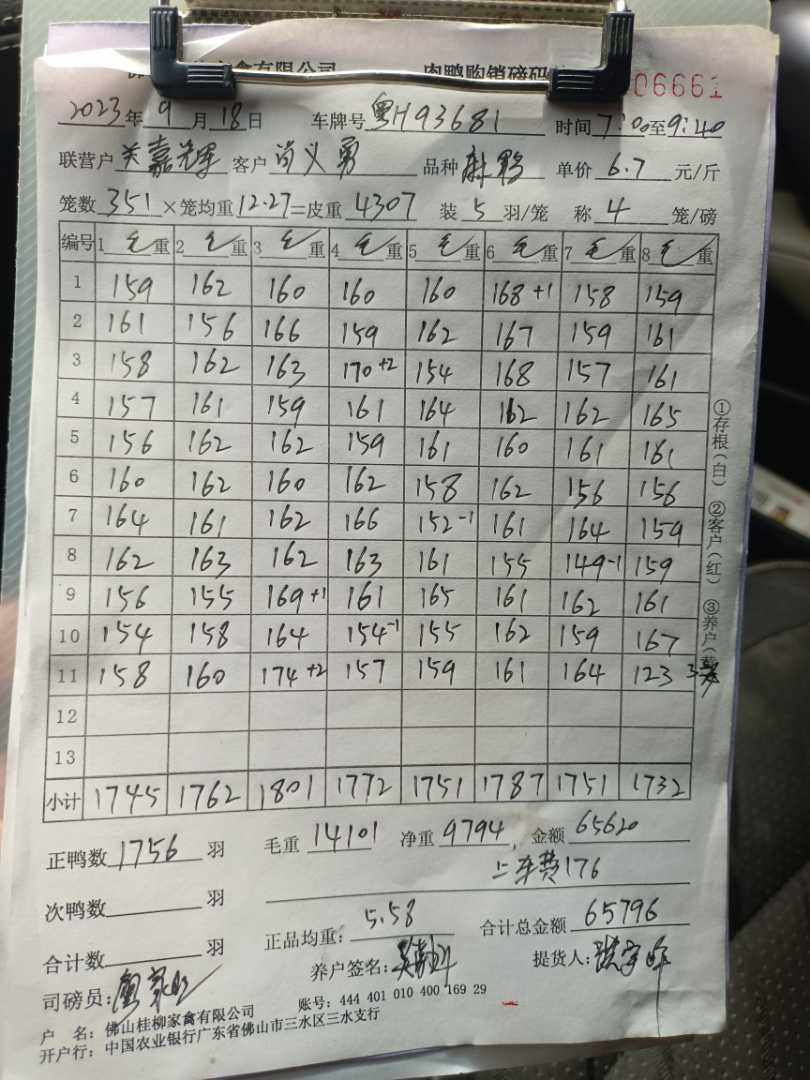 家禽有限公司 肉鸭购销磅码 06661
2023年9月18日 车牌号 粤H93681 时间7:00至9:40
联营户 关嘉辉 客户 肖义勇 品种 麻鸭 单价 6.7 元/斤
笼数 351 ×笼均重 12.27 =皮重 4307 装 5 羽/笼 称 4 笼/磅
编号 1 毛重 2 毛重 3 毛重 4 毛重 5 毛重 6 毛重 7 毛重 8 毛重
1 159 162 160 160 160 168+1 158 159
2 161 156 166 159 162 167 159 161
3 158 162 163 170+2 154 168 157 161
4 157 161 159 161 164 162 162 165
5 156 162 162 159 161 160 161 161
6 160 162 160 162 158 162 156 156
7 164 161 162 166 152-1 161 164 159
8 162 163 162 163 161 155 149-1 159
9 156 155 169+1 161 165 161 162 161
10 154 158 164 154-1 155 162 159 167
11 158 160 174+2 157 159 161 164 123 3
12
13
小计 1745 1762 1801 1772 1751 1787 1751 1732
正鸭数 1756 羽 毛重 14101 净重 9794 金额 65620
上车费176
次鸭数 羽
正品均重: 5.58 合计总金额 65796
合计数 羽
养户签名: 提货人:
司磅员:
户 名: 佛山桂柳家禽有限公司 账号: 444 401 010 400 169 29
开户行: 中国农业银行广东省佛山市三水区三水支行
①存根(白) ②客户(红) ③养户(黄)